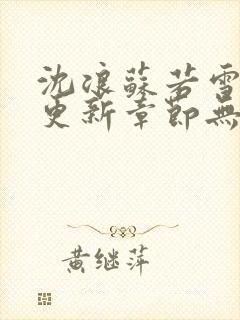 沈浪蘇若雪
更新章節無
黄继萍